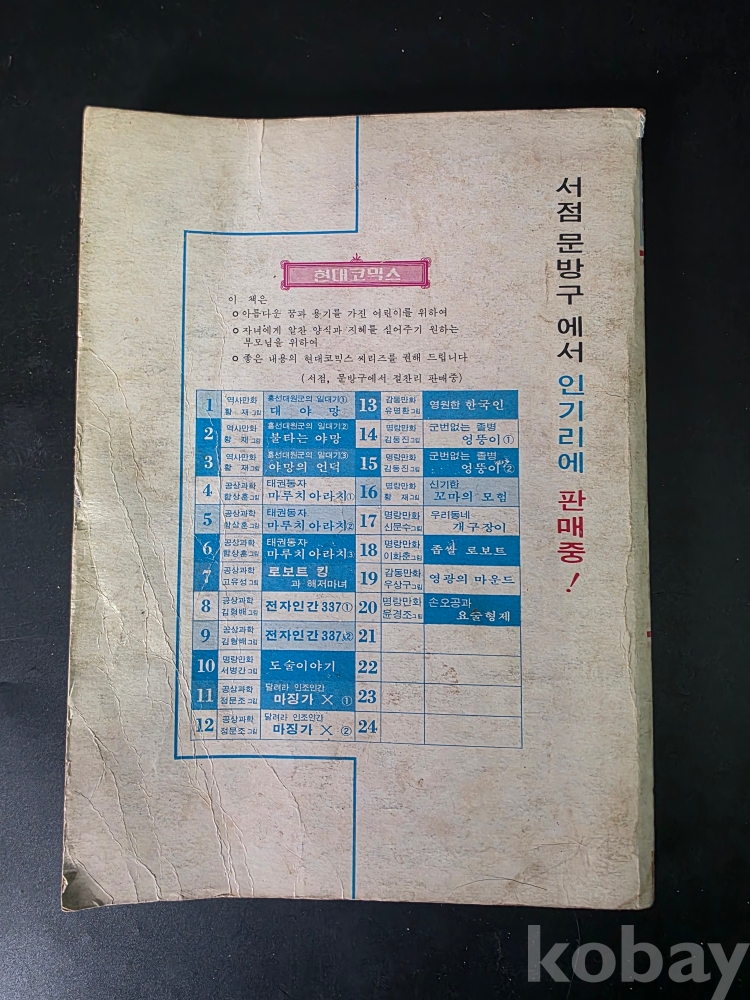 서점 문방구에서 인기리에 판매중!
현대코믹스
이 책은
아름다운 꿈과 용기를 가진 어린이를 위하여
자녀에게 알찬 양식과 지혜를 심어주기 원하는
부모님을 위하여
좋은 내용의 현대코믹스 씨리즈를 권해 드립니다
(서점, 문방구에서 절찬리 판매중)
1 역사만화 황 재 그림 흥선대원군의 일대기① 대 야 망
2 역사만화 황 재 그림 흥선대원군의 일대기② 불타는 야망
3 역사만화 황 재 그림 흥선대원군의 일대기③ 야망의 언덕
4 공상과학 함상훈 그림 태권동자 마루치아라치①
5 공상과학 함상훈 그림 태권동자 마루치아라치②
6 공상과학 함상훈 그림 태권동자 마루치아라치③
7 공상과학 고유성 그림 로보트 킹 과 해저마녀
8 공상과학 김형배 그림 전자인간 337①
9 공상과학 김형배 그림 전자인간 337②
10 명랑만화 서병간 그림 도술이야기
11 공상과학 정문조 그림 달려라 인조인간 마징가 X ①
12 공상과학 정문조 그림 달려라 인조인간 마징가 X ②
13 감동만화 유명환 그림 영원한 한국인
14 명랑만화 김동진 그림 군번없는 졸병 엉뚱이①
15 명랑만화 김동진 그림 군번없는 졸병 엉뚱이②
16 명랑만화 황 재 그림 신기한 꼬마의 모험
17 명랑만화 신문수 그림 우리동네 개구장이
18 명랑만화 이화춘 그림 좁쌀 로보트
19 감동만화 우상구 그림 영광의 마운드
20 명랑만화 윤경조 그림 손오공과 요술형제
21
22
23
24
kobay